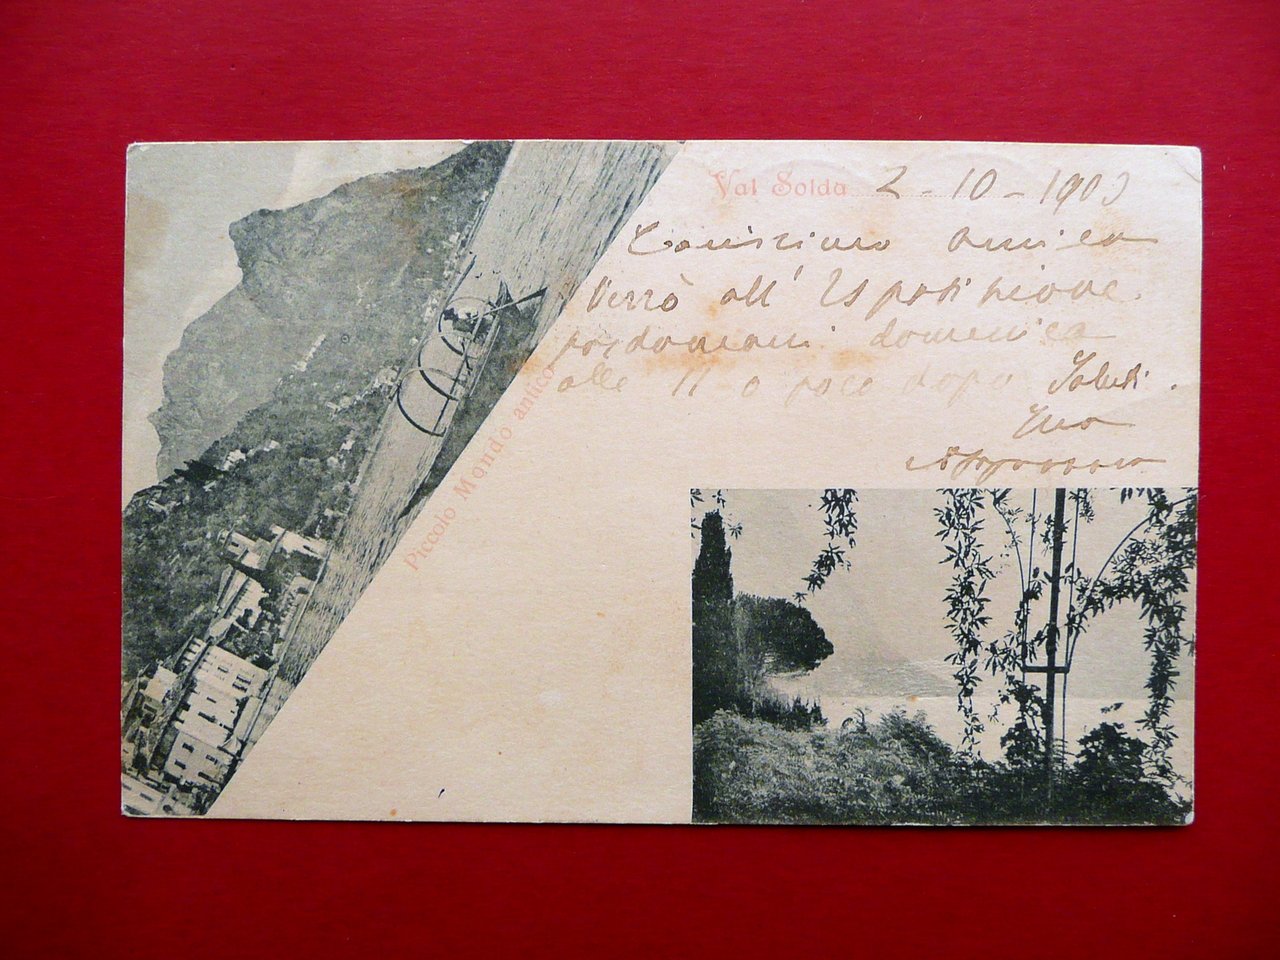 Val Solda 2-10-1903
Carissima amica
Verrò all' Esposizione
posdomani domenica
alle 11 o poco dopo Saluti.
Sua
Piccolo Mondo antico